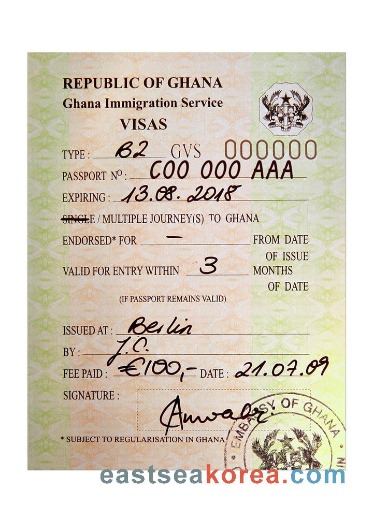 REPUBLIC OF GHANA
Ghana Immigration Service
VISAS
TYPE : B2 GVS 000000
PASSPORT Nº : C00 000 AAA
EXPIRING : 13.08.2018
SINGLE / MULTIPLE JOURNEY(S) TO GHANA
ENDORSED* FOR — FROM DATE
OF ISSUE
VALID FOR ENTRY WITHIN 3 MONTHS
OF DATE
(IF PASSPORT REMAINS VALID)
ISSUED AT : Berlin
BY : J.C.
FEE PAID : €100,- DATE : 21.07.09
SIGNATURE :
* SUBJECT TO REGULARISATION IN GHANA
EMBASSY OF GHANA
eastseakorea.com